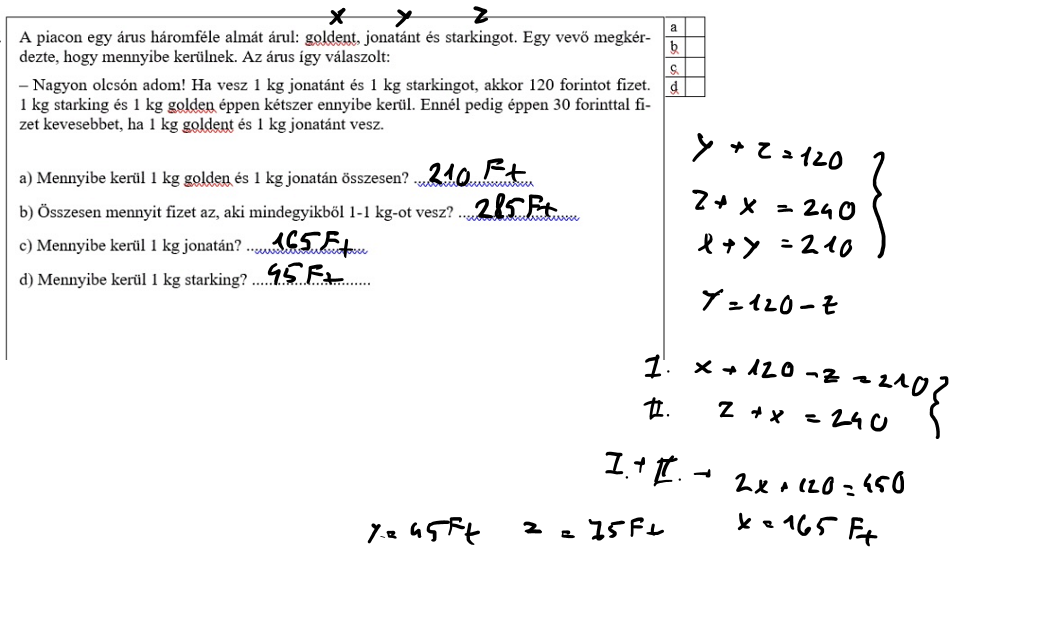 x y z
A piacon egy árus háromféle almát árul: goldent, jonatánt és starkingot. Egy vevő megkér-
dezte, hogy mennyibe kerülnek. Az árus így válaszolt:
– Nagyon olcsón adom! Ha vesz 1 kg jonatánt és 1 kg starkingot, akkor 120 forintot fizet.
1 kg starking és 1 kg golden éppen kétszer ennyibe kerül. Ennél pedig éppen 30 forinttal fi-
zet kevesebbet, ha 1 kg goldent és 1 kg jonatánt vesz.
a) Mennyibe kerül 1 kg golden és 1 kg jonatán összesen? ...210 Ft
b) Összesen mennyit fizet az, aki mindegyikből 1-1 kg-ot vesz? ...285 Ft
c) Mennyibe kerül 1 kg jonatán? ...165 Ft
d) Mennyibe kerül 1 kg starking? ...45 Ft......
a
b
c
d
y + z = 120
z + x = 240
x + y = 210
y = 120 - z
I. x + 120 - z = 210
II. z + x = 240
I. + II. → 2x + 120 = 450
y = 45 Ft z = 75 Ft x = 165 Ft